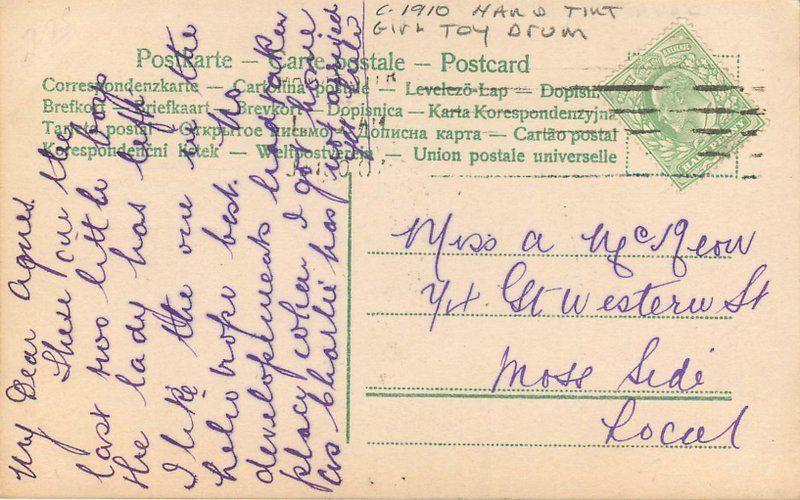 C. 1910 HAND TINT
GIRL TOY DRUM
Postkarte — Carte postale — Postcard
Correspondenzkarte — Cartolina postale — Levelező-Lap — Dopisnice
Brefkort — Briefkaart — Brevkort — Dopisnica — Karta Korespondenzyjna
Tarjeta postal — Открытое письмо — Дописна карта — Cartão postal
Korespondenční lístek — Weltpostverein — Union postale universelle
HALFPENNY
My Dear Agnes.
These are the
last two little boys
the lady has left
I like the one in the
heliotrope best. No
developments had taken
place when I got home
as Charlie has not arrived
Miss A McKeow
74 Gt Western St
Moss Side
Local